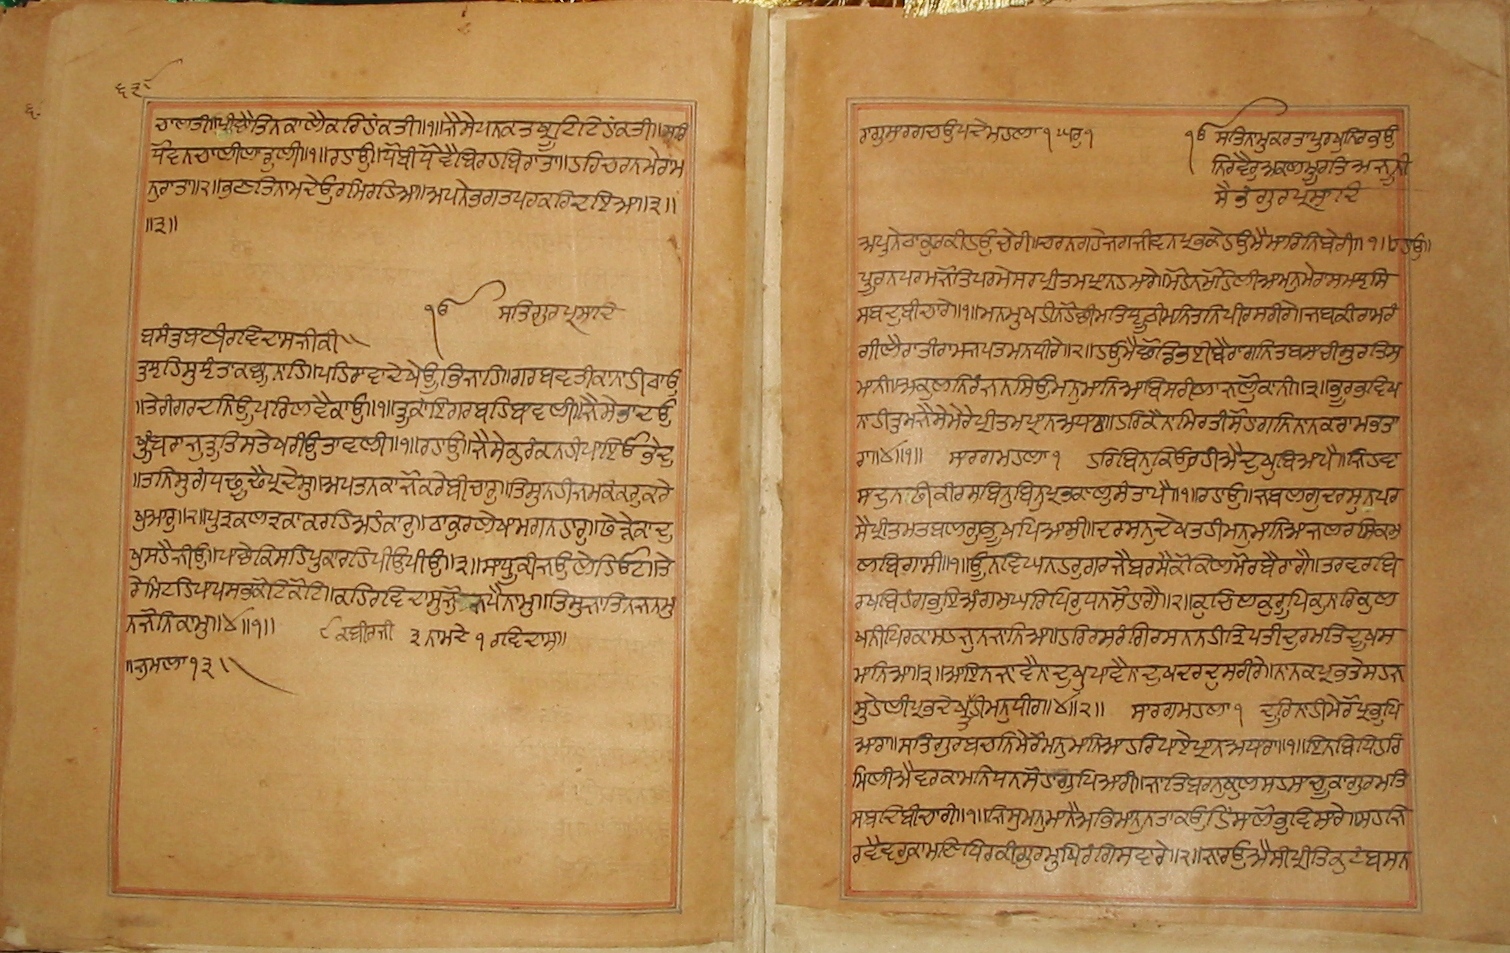 ੬੩੮
ਚਾਲਤੀ॥ਪੀਛੈਤਿਨਕਾਲੈਕਰਿਹੰਕਤੀ॥੧॥ਜੈਸੇਪਨਕਤਥ੍ਰੂਟਿਟਿਹਾਂਕਤੀ॥ਸਰਿ
ਧੋਵਨਚਾਲੀਲਾਡੁਲੀ॥੧॥ਰਹਾਉ॥ਧੋਬੀਧੋਵੈਬਿਰਹਬਿਰਾਤਾ॥ਹਰਿਚਰਨਮੇਰਾਮ
ਨੁਰਾਤਾ॥੨॥ਭਣਤਿਨਾਮਦੇਉਰਮਿਰਹਿਆ॥ਅਪਨੇਭਗਤਪਰਕਰਿਦਇਆ॥੩॥
॥੩॥
ੴ ਸਤਿਗੁਰਪ੍ਰਸਾਦਿ
ਬਸੰਤੁਬਾਣੀਰਵਿਦਾਸਜੀਕੀ
ਤੁਝਹਿਸੁਝੰਤਾਕਛੂਨਾਹਿ॥ਪਹਿਰਾਵਾਦੇਖੇਊਭਿਜਾਹਿ॥ਗਰਬਵਤੀਕਾਨਾਹੀਠਾਉ
॥ਤੇਰੀਗਰਦਨਿਊਪਰਿਲਵੈਕਾਉ॥੧॥ਤੂਕਾਂਇਗਰਬਹਿਬਾਵਲੀ॥ਜੈਸੇਭਾਦਉ
ਖੂੰਬਰਾਜੁਤੂਤਿਸਤੇਖਰੀਉਤਾਵਲੀ॥੧॥ਰਹਾਉ॥ਜੈਸੇਕੁਰੰਕਨਹੀਪਾਇਓਭੇਦੁ
॥ਤਨਿਸੁਗੰਧਢੂਢੈਪ੍ਰਦੇਸੁ॥ਅਪਤਨਕਾਜੋਕਰੇਬੀਚਾਰੁ॥ਤਿਸੁਨਹੀਜਮਕੰਕਰੁਕਰੇ
ਖੁਆਰੁ॥੨॥ਪੁਤ੍ਰਕਲਤ੍ਰਕਾਕਰਹਿਅਹੰਕਾਰੁ॥ਠਾਕੁਰੁਲੇਖਾਮਗਨਹਾਰੁ॥ਫੇੜੇਕਾਦੁ
ਖੁਸਹੈਜੀਉ॥ਪਾਛੇਕਿਸਹਿਪੁਕਾਰਹਿਪੀਉਪੀਉ॥੩॥ਸਾਧੂਕੀਜਉਲੇਹਿਓਟ॥ਤੇ
ਰੇਮਿਟਹਿਪਾਪਸਭਕੋਟਿਕੋਟਿ॥ਕਹਿਰਵਿਦਾਸੁਜੋਜਪੈਨਾਮੁ॥ਤਿਸੁਜਾਤਿਨਜਨਮੁ
ਨਜੋਨਿਕਾਮੁ॥੪॥੧॥ ੮ਕਬੀਰਜੀ ੩ ਨਾਮਦੇ ੧ ਰਵਿਦਾਸ॥
॥ਜੁਮਲਾ੧੩॥
ਰਾਗੁਸਾਰਗਚਉਪਦੇਮਹਲਾ੧ਘਰੁ੧
ੴ ਸਤਿਨਾਮੁਕਰਤਾਪੁਰਖੁਨਿਰਭਉ
ਨਿਰਵੈਰੁਅਕਾਲਮੂਰਤਿਅਜੂਨੀ
ਸੈਭੰਗੁਰਪ੍ਰਸਾਦਿ
ਅਪੁਨੇਠਾਕੁਰਕੀਹਉਚੇਰੀ॥ਚਰਨਗਹੇਜਗਜੀਵਨਪ੍ਰਭਕੇਹਉਮੈਮਾਰਿਨਿਬੇਰੀ॥੧॥ਰਹਾਉ॥
ਪੂਰਨਪਰਮਜੋਤਿਪਰਮੇਸਰਪ੍ਰੀਤਮਪ੍ਰਾਨਹਮਾਰੇ॥ਮੋਹਨਮੋਹਿਲੀਆਮਨੁਮੇਰਾਸਮਝਸਿ
ਸਬਦੁਬੀਚਾਰੇ॥੧॥ਮਨਮੁਖਹੀਨਹੋਛੀਮਤਿਝੂਠੀਮਨਿਤਨਿਪੀਰਸਰੀਰੇ॥ਜਬਕੀਰਾਮਰੰ
ਗੀਲੈਰਾਤੀਰਾਮਜਪਤਮਨਧੀਰੇ॥੨॥ਹਉਮੈਛੋਡਿਭਈਬੈਰਾਗਨਿਤਬਸਾਚੀਸੁਰਤਿਸ
ਮਾਨੀ॥ਅਕੁਲਨਿਰੰਜਨਸਿਉਮਨੁਮਾਨਿਆਬਿਸਰੀਲਾਜਲੋਕਾਨੀ॥੩॥ਭੂਰਭਵਿਖ
ਨਾਹੀਤੁਮਜੈਸੇਮੇਰੇਪ੍ਰੀਤਮਪ੍ਰਾਨਅਧਾਰਾ॥ਹਰਿਕੈਨਾਮਿਰਤੀਸੋਹਾਗਨਿਨਾਨਕਰਾਮਭਤਾ
ਰਾ॥੪॥੧॥ ਸਾਰਗਮਹਲਾ੧ ਹਰਿਬਿਨੁਕਿਉਰਹੀਐਦੁਖੁਬਿਆਪੈ॥ਜਿਹਵਾ
ਸਾਦੁਨਫੀਕੀਰਸਬਿਨੁਬਿਨੁਪ੍ਰਭਕਾਲੁਸੰਤਾਪੈ॥੧॥ਰਹਾਉ॥ਜਬਲਗੁਦਰਸੁਨਪਰ
ਸੈਪ੍ਰੀਤਮਤਬਲਗੁਭੂਖਪਿਆਸੀ॥ਦਰਸਨੁਦੇਖਤਹੀਮਨੁਮਾਨਿਆਜਲਰਸਿਕਮ
ਲਬਿਗਾਸੀ॥੧॥ਊਨਵਿਘਨਹਰੁਗਰਜੈਬਰਸੈਕੋਕਿਲਮੋਰਬੈਰਾਗੈ॥ਤਰਵਰਬਿ
ਰਖਬਿਹੰਗਭੁਇਅੰਗਮਘਰਿਪਿਰੁਧਨਸੋਹਾਗੈ॥੨॥ਕੁਚਿਲਕੁਰੂਪਿਕੁਨਾਰਿਕੁਲ
ਖਨੀਪਿਰਕਾਸਹਜੁਨਜਾਨਿਆ॥ਹਰਿਰਸਰੰਗਿਰਸਨਨਹੀਤ੍ਰਿਪਤੀਦੁਰਮਤਿਦੂਖਸ
ਮਾਨਿਆ॥੩॥ਆਇਨਜਾਵੈਨਦੁਖੁਪਾਵੈਨਦੁਖਦਰਦੁਸਰੀਰੇ॥ਨਾਨਕਪ੍ਰਭਤੇਸਹਜ
ਸੁਹੇਲੀਪ੍ਰਭਦੇਖਤਹੀਮਨੁਧੀਰੇ॥੪॥੨॥ ਸਾਰਗਮਹਲਾ੧ ਦੂਰਿਨਾਹੀਮੇਰੋਪ੍ਰਭੁਪਿ
ਆਰਾ॥ਸਤਿਗੁਰਬਚਨਿਮੇਰੋਮਨੁਮਾਨਿਆਹਰਿਪਾਏਪ੍ਰਾਨਅਧਾਰਾ॥੧॥ਇਨਬਿਧਿਹਰਿ
ਮਿਲੀਐਵਰਕਾਮਨਿਧਨਸੋਹਾਗੁਪਿਆਰੀ॥ਜਾਤਿਬਰਨਕੁਲਸਹਸਾਚੂਕਾਗੁਰਮਤਿ
ਸਬਦਿਬੀਚਾਰੀ॥੧॥ਜਿਸੁਮਨੁਮਾਨੈਅਭਿਮਾਨੁਨਤਾਕਉਹਿੰਸਾਲੋਭੁਵਿਸਾਰੇ॥ਸਹਜਿ
ਰਵੈਵਰੁਕਾਮਣਿਪਿਰਕੀਗੁਰਮੁਖਿਰੰਗਿਸਵਾਰੇ॥੨॥ਜਾਰਉਐਸੀਪ੍ਰੀਤਿਕੁਟੰਬਸਨ